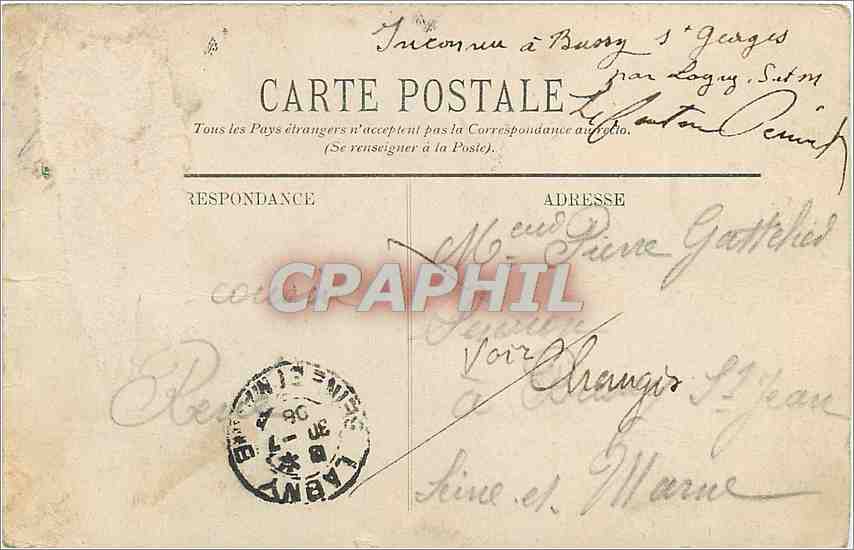 Inconnu à Bussy St Georges
par Lagny. S et M
CARTE POSTALE
Le facteur
Tous les Pays étrangers n'acceptent pas la Correspondance au recto.
(Se renseigner à la Poste).
RESPONDANCE
ADRESSE
Pierre
CPAPHIL
voir
Changis
René
à St Jean
Seine et Marne
LAGNY
SEINE ET M
8
30 -7
08